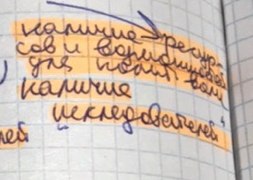 наличие ресур-
сов и возможностей
для полит. воли
наличие
исследователей
лей